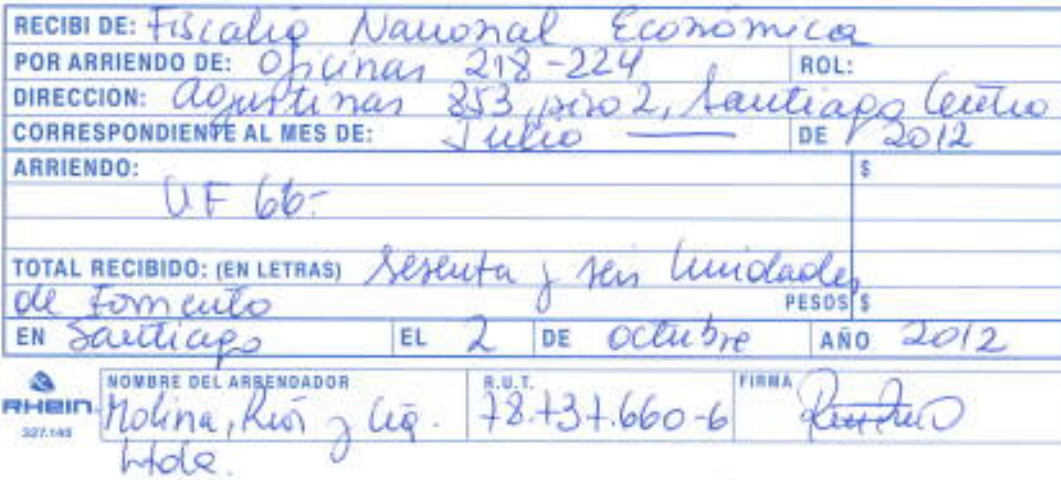 RECIBI DE: Fiscalia Nacional Económica
POR ARRIENDO DE: Oficinas 218-224 ROL:
DIRECCION: Agustinas 853, piso 2, Santiago Centro
CORRESPONDIENTE AL MES DE: Julio — DE 2012
ARRIENDO: $
UF 66.-
TOTAL RECIBIDO: (EN LETRAS) Sesenta y seis Unidades
de Fomento PESOS $
EN Santiago EL 2 DE octubre AÑO 2012
NOMBRE DEL ARRENDADOR R.U.T. FIRMA
RHEIN Molina, Ríos y Cía. 78.737.660-6
327.145
Ltda.